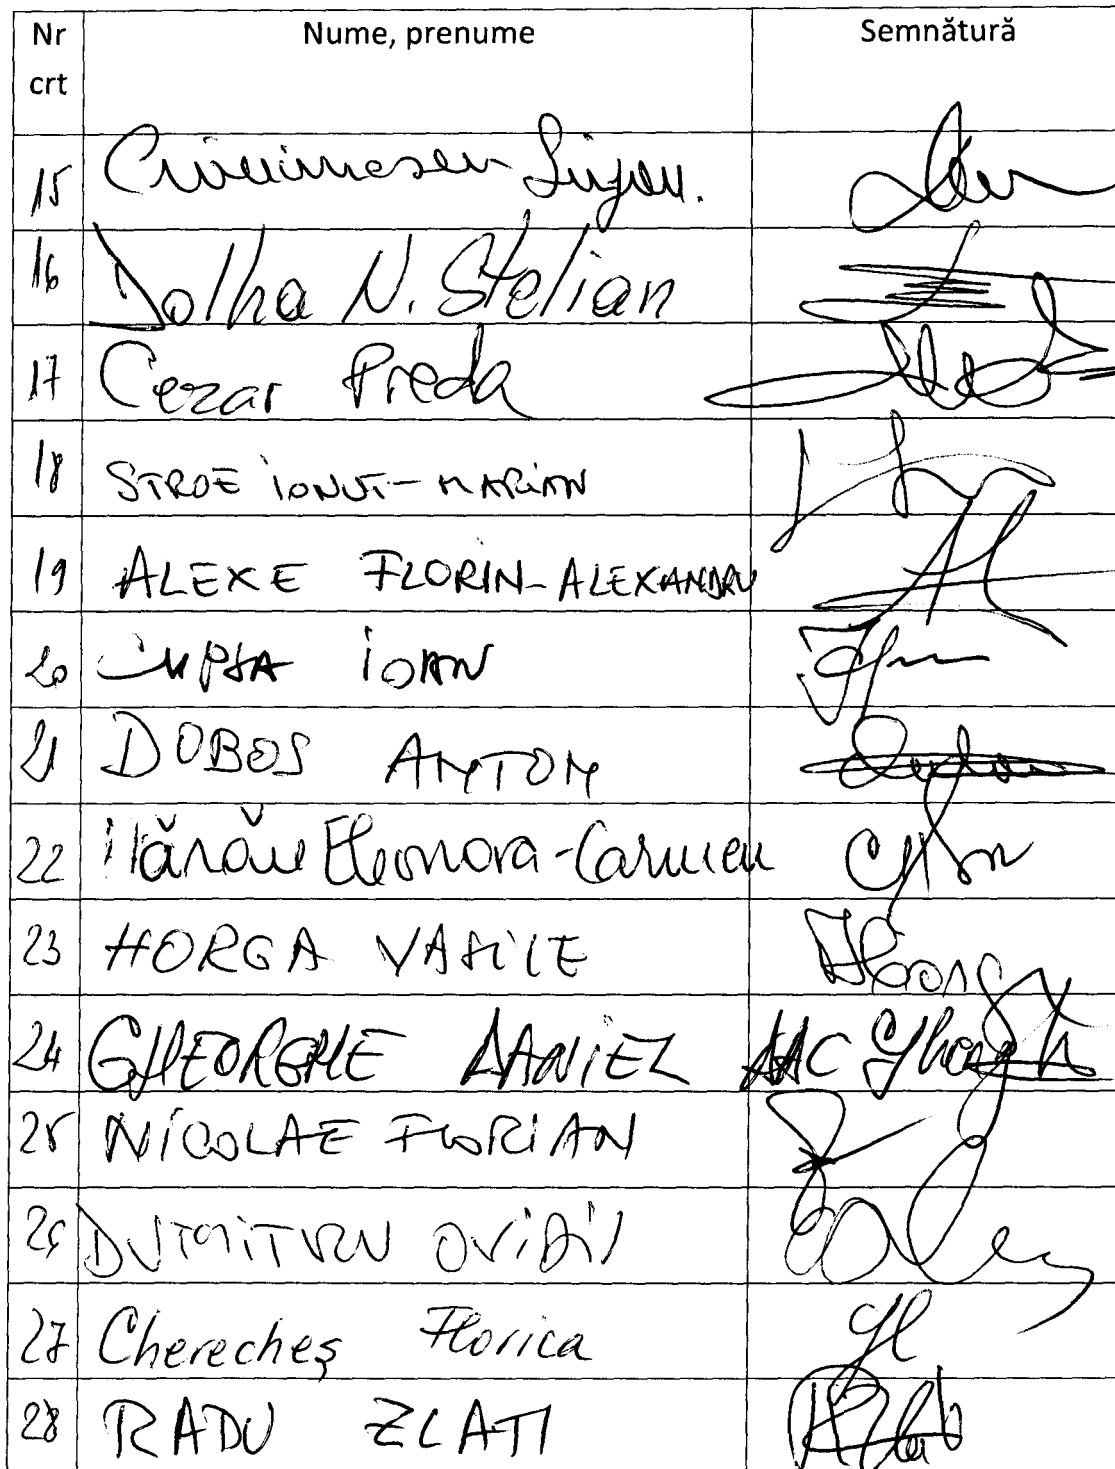 Nr crt Nume, prenume Semnătură
15
16 Dolha N. Stelian
17 Cezar Preda
18 STROE IONUT-MARIAN
19 ALEXE FLORIN-ALEXANDRU
20 CUPȘA IOAN
21 DOBOS ANTON
22 Hărău Eleonora-Carmen
23 HORGA VASILE
24 GHEORGHE DANIEL
25 NICOLAE FLORIAN
26 DUMITRU OVIDIU
27 Cherecheș Florica
28 RADU ZLATI